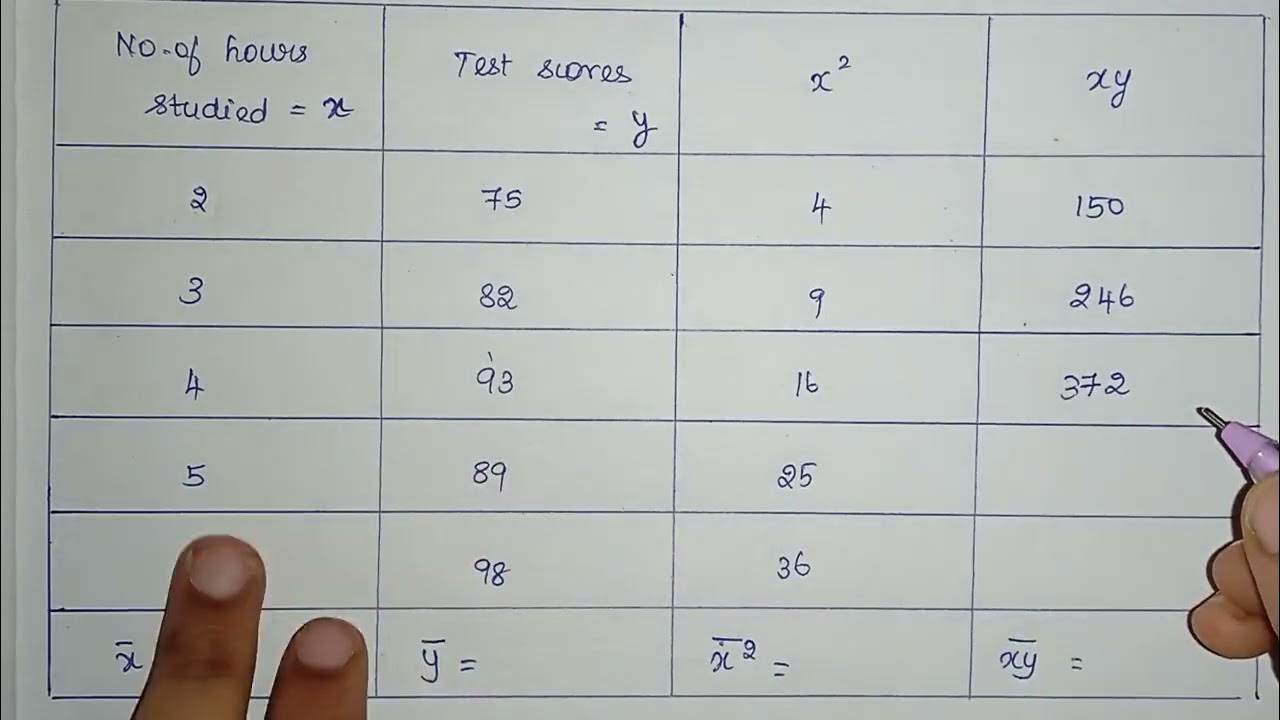 No. of hours
studied = x
Test scores
= y
x²
xy
2
75
4
150
3
82
9
246
4
93
16
372
5
89
25
98
36
x̄
ȳ =
x̄² =
x̄ȳ =